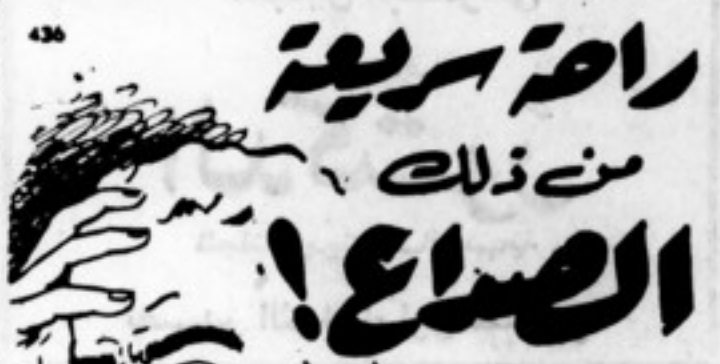 436
راحة سريعة
من ذلك
الصداع!